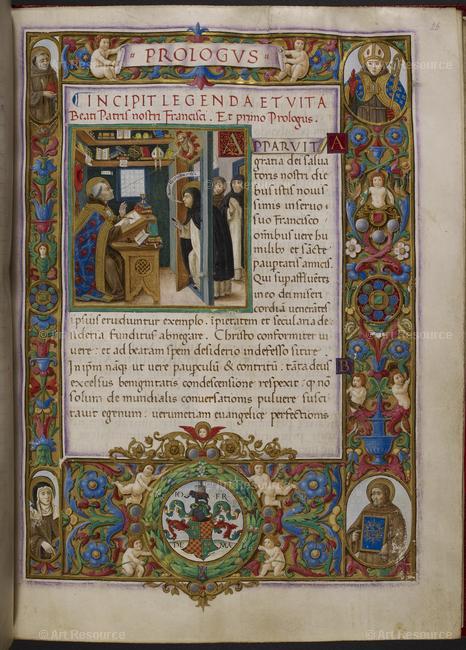 26
PROLOGVS
INCIPIT LEGENDA ET VITA
Beati Patris nostri Francisci. Et primo Prologus.
APPARVIT A
gratia dei salua
toris nostri die
bus istis nouis
simis in seruo
suo Francisco
omnibus uere hu
milibus et sacte
paupertatis amicis.
Qui supaffluetez
in eo dei miseri
cordia uenerates
ipsius erudiuntur exemplo. ipietatem et secularia de
sideria funditus abnegare. Christo conformiter ui
uere: et ad beatam spem desiderio indefesso sitire.
In ipm naqz ut uere paupculu & contritu: tata deus B
excelsus benignitatis condescensione respexit: q no
solum de mundialis conuersationis puluere susci
tauit egenum: uerumetiam euangelice perfectionis
IO FR
DE MA
© Art Resource
© Art Resource
© Art Resource
© Art Resource